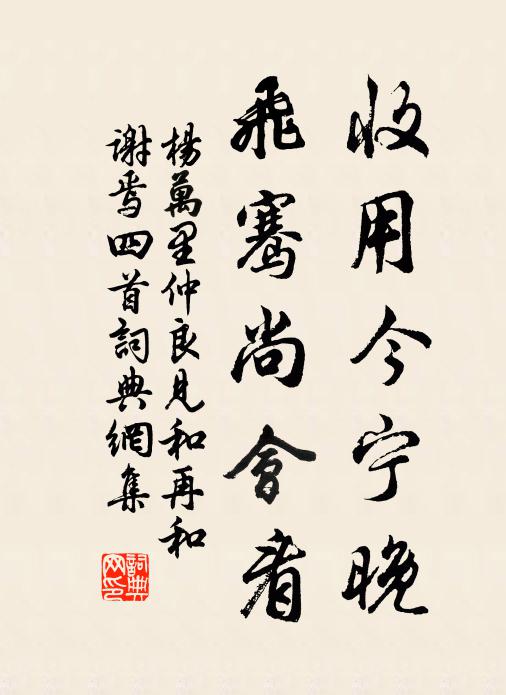 收用今宁晚
飛騫尚會看
楊萬里仲良見和再和
謝焉四首詞典網集
詞典网印